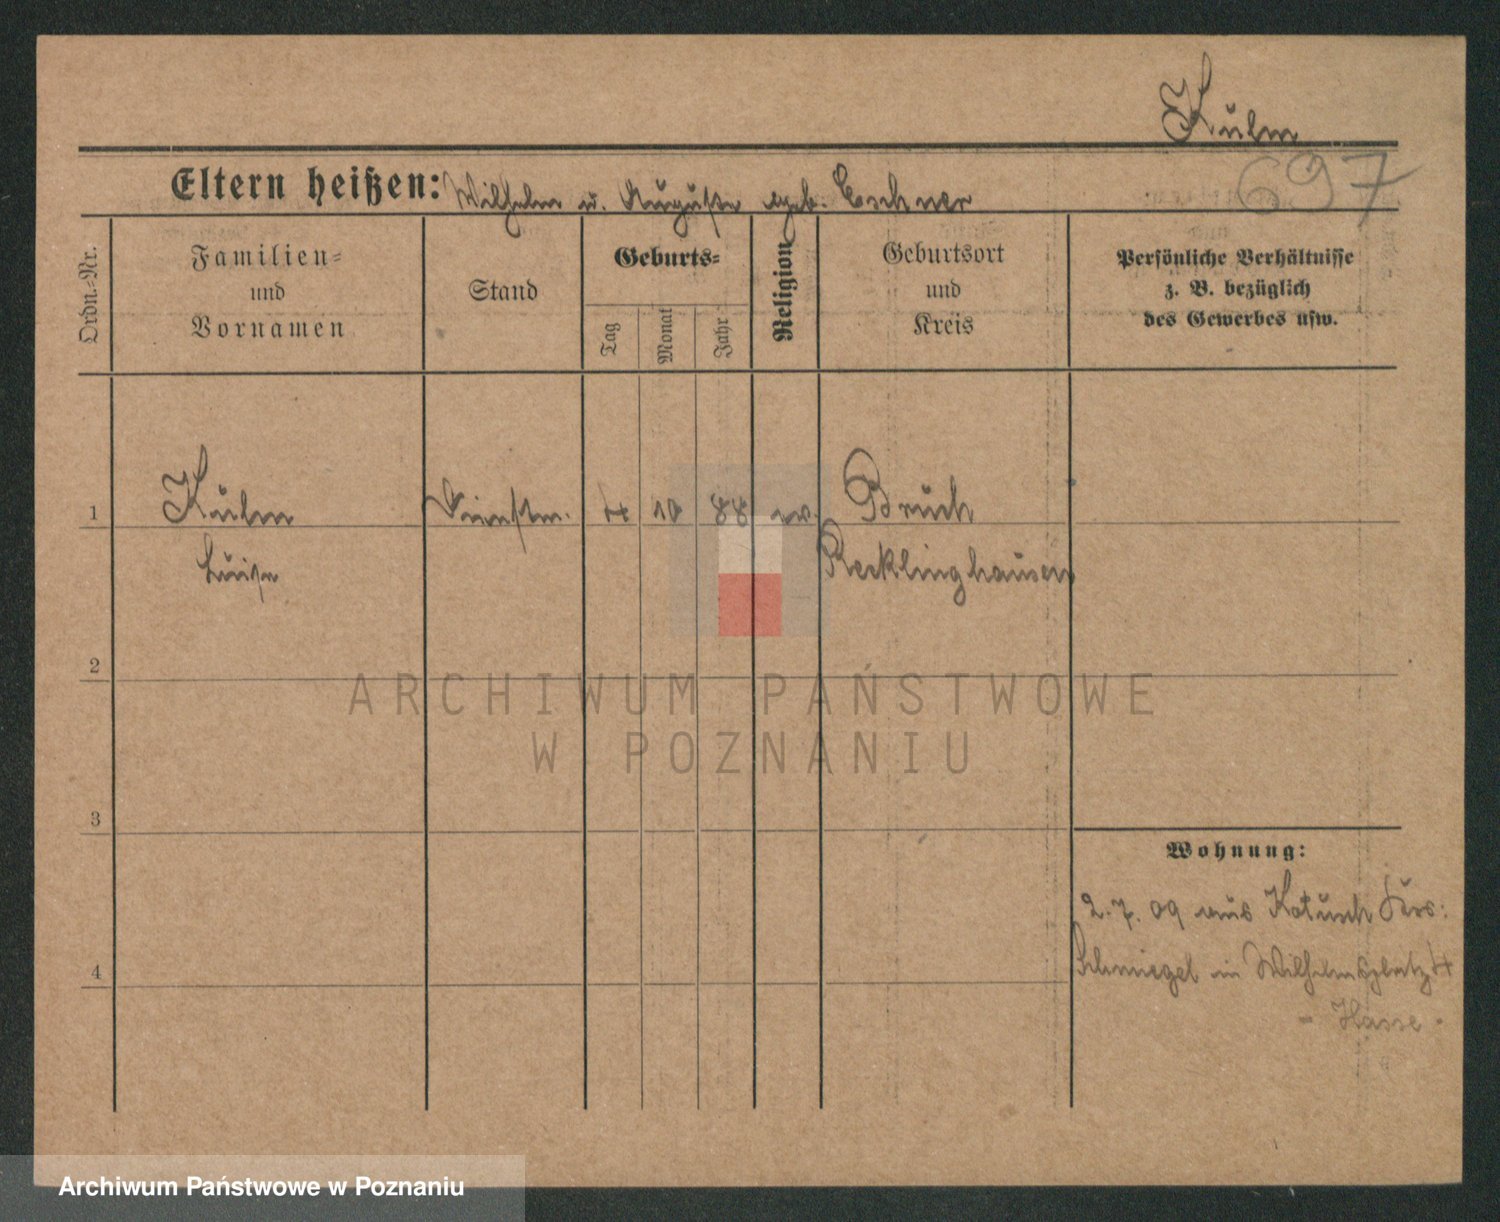 Kuhn
697
Eltern heißen: Wilhelm u. Auguste geb. Eschner
Ordn.-Nr.
Familien- und Vornamen
Stand
Geburts-
Tag
Monat
Jahr
Religion
Geburtsort und Kreis
Persönliche Verhältnisse
z. B. bezüglich
des Gewerbes usw.
1
Kuhn
Dienstm.
4
10
88
ev.
Bruch
Luise
Recklinghausen
2
3
4
Wohnung:
2.7.09 aus Kotusch
Schmiegel in Wilhelmsplatz 4
- Hasse -
ARCHIWUM PAŃSTWOWE
W POZNANIU
Archiwum Państwowe w Poznaniu